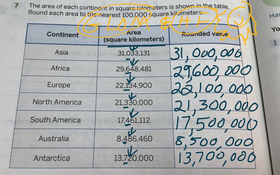 7 The area of each continent in square kilometers is shown in the table.
Round each area to the nearest 100,000 square kilometers.
Continent Area (square kilometers) Rounded value
Asia 31,033,131 31,000,000
Africa 29,648,481 29,600,000
Europe 22,134,900 22,100,000
North America 21,330,000 21,300,000
South America 17,461,112 17,500,000
Australia 8,486,460 8,500,000
Antarctica 13,720,000 13,700,000